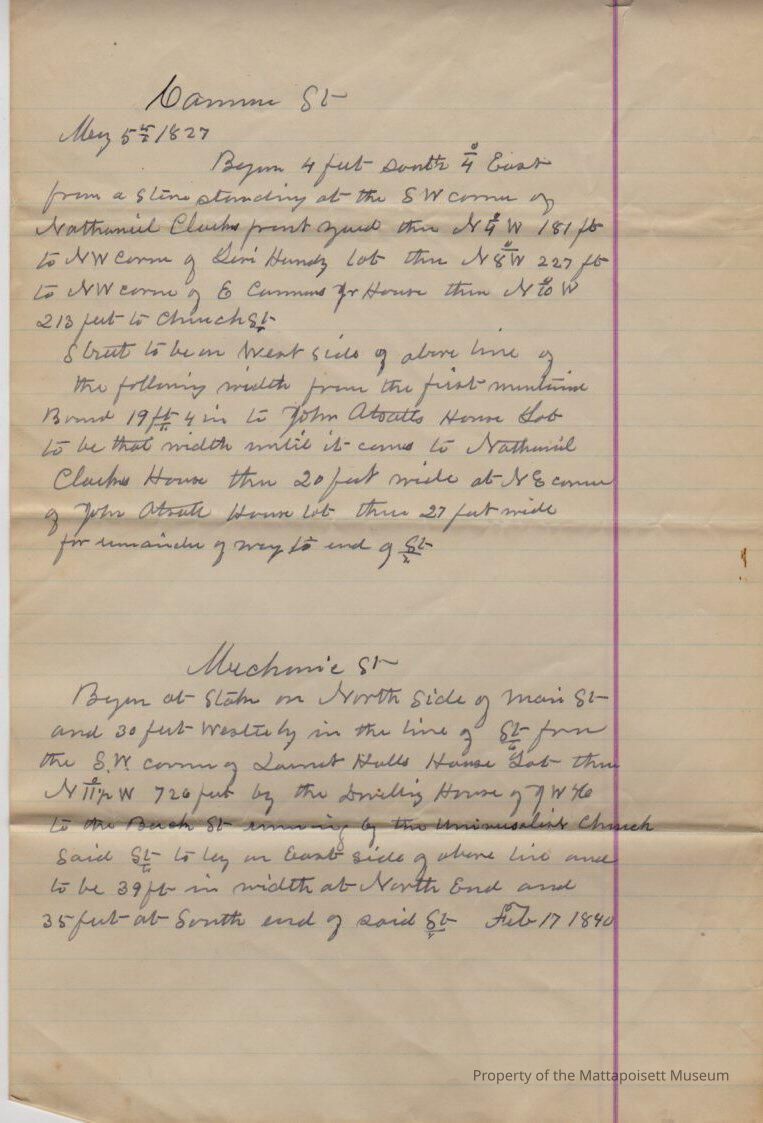 Cannon St
May 5th 1827
Begun 4 feet south 4° East
from a Stone standing at the SW corner of
Nathaniel Clarks front yard then N 9° W 181 ft
to NW corner of Levi Handy lot then N 8° W 227 ft
to NW corner of E Cannons Jr House then N 10° W
213 feet to Church St
Street to be on West side of above line of
the following width from the first mentioned
Bound 19 ft 4 in to John Atsatts House Lot
to be that width until it comes to Nathaniel
Clarks House then 20 feet wide at NE corner
of John Atsatt House lot then 27 feet wide
for remainder of way to end of St
Mechanic St
Begun at Stake on North side of Main St
and 30 feet Westerly in the line of St from
the S.W. corner of Halls House Lot then
N W 726 feet by the Dwelling House of
to the Back St running by the Universalist Church
Said St to lay on East side of above line and
to be 39 ft in width at North End and
35 feet at South end of said St Feb 17 1840
Property of the Mattapoisett Museum